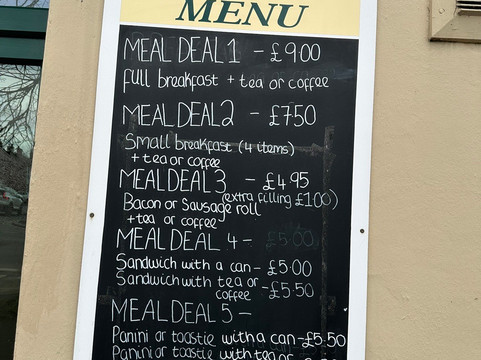 MENU
MEAL DEAL 1 - £9.00
full breakfast + tea or coffee
MEAL DEAL 2 - £7.50
Small breakfast (4 items)
+ tea or coffee
MEAL DEAL 3 - £4.95
Bacon or Sausage roll (extra filling £1.00)
+ tea or coffee
MEAL DEAL 4 - £5.00
Sandwich with a can - £5.00
Sandwich with tea or
coffee - £5.50
MEAL DEAL 5 -
Panini or toastie with a can - £5.50
Panini or toastie with tea or